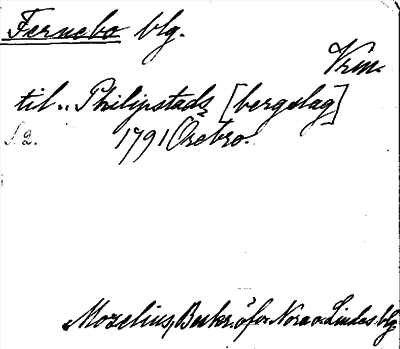 Fernebo blg.
Vrm.
til.. Philipstads [bergslag]
S. 2. 1791 Örebro.
Mozelius, Beskr. öfver Nora o Lindes blg